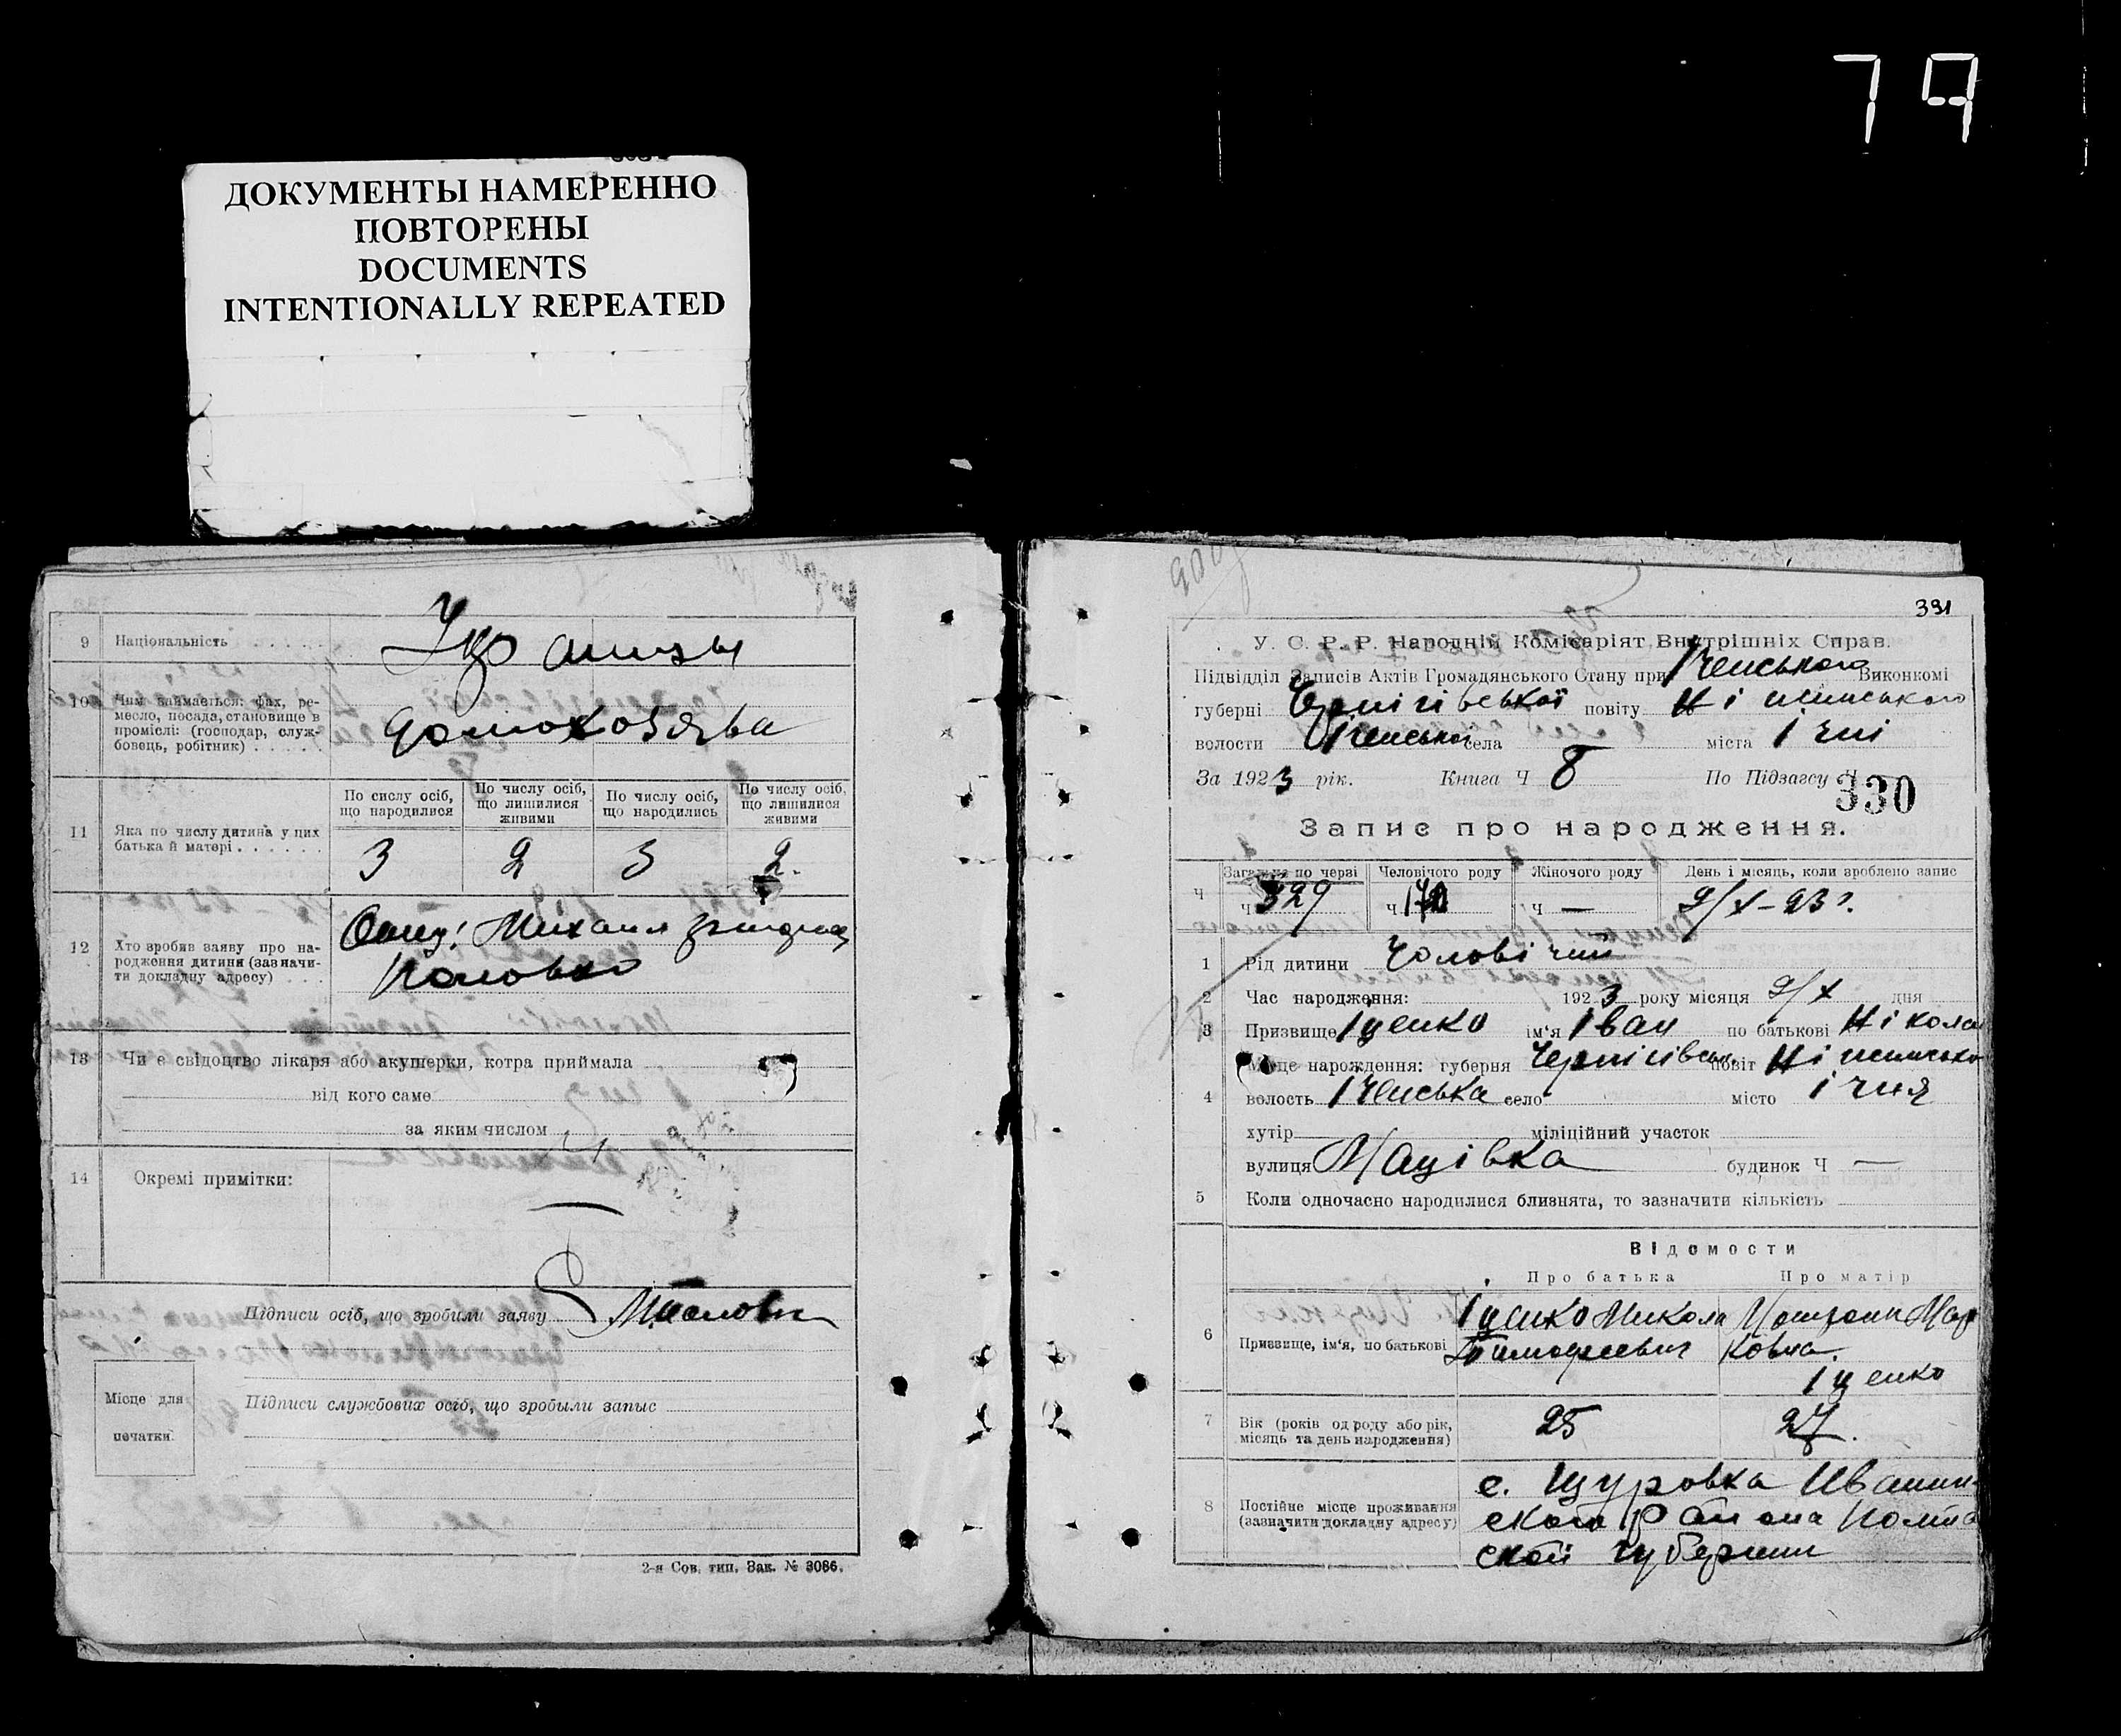 79
ДОКУМЕНТЫ НАМЕРЕННО
ПОВТОРЕНЫ
DOCUMENTS
INTENTIONALLY REPEATED
9 Національність
10 Чим займається: фах, ре-
месло, посада, становище в
промислі: (господар, служ-
бовець, робітник)
домохозяева
11 Яка по числу дитина у цих
батька й матері
По сислу осіб,
що народилися
По числу осіб,
що лишилися
живими
По числу осіб,
що народились
По числу осіб,
що лишилися
живими
3 2 3 2.
12 Хто зробив заяву про на-
родження дитини (зазначи-
ти докладну адресу)
Отец: Михаил
13 Чи є свідоцтво лікаря або акушерки, котра приймала
від кого саме
за яким числом
14 Окремі примітки:
Підписи осіб, що зробили заяву
Місце для
печатки
Підписи службових осіб, що зробыли запыс
2-я Сов. тип. Зак. № 3086.
331
У. С. Р. Р. Народній Комісаріят Внутрішніх Справ.
Підвідділ Записів Актів Громадянського Стану при Іченського Виконкомі
губерні Чернігівської повіту Ніжинського
волости Іченської села міста Ічні
За 1923 рік. Книга Ч 8 По Підзагсу Ч
330
Запис про народження.
Загальна по черзі Человічого роду Жіночого роду День і місяць, коли зроблено запис
Ч Ч 329 Ч Ч — 2/X–23 г.
1 Рід дитини Чоловічий
2 Час народження: 1923 року місяця 2/X дня
3 Призвище Іценко ім'я Іван по батькові Нікола
4 Місце нарождення: губерня Чернігівськ повіт Ніжинсько
волость Іченська село місто Ічня
хутір міліційний участок
вулиця Мацівка будинок Ч —
5 Коли одночасно народилися близнята, то зазначити кількість
Відомости
Про батька Про матір
6 Призвище, ім'я, по батькові
Іценко Микола
Тимофеевич
Іценко
7 Вік (років од роду або рік,
місяць та день народження)
25 27.
8 Постійне місце проживання
(зазначити докладну адресу)
с. Щуровка Иваниц-
ского Района Полта
ской губернии